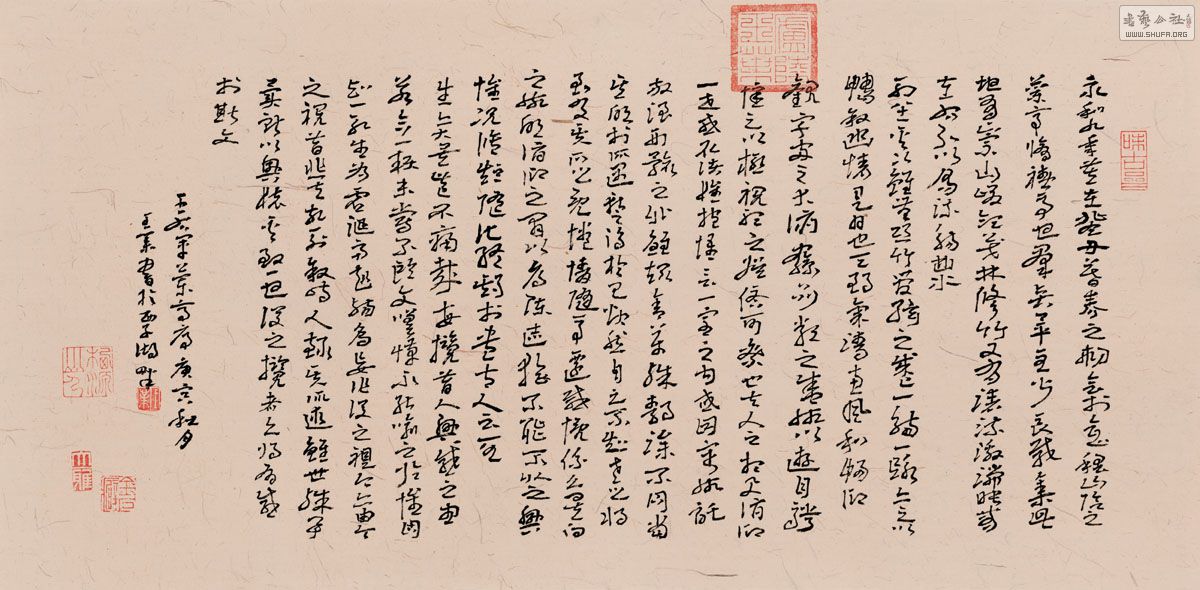 書藝公社
WWW.SHUFA.ORG
永和九年歲在癸丑暮春之初會於會稽山陰之
蘭亭脩禊事也羣賢畢至少長咸集此
地有崇山峻領茂林脩竹又有清流激湍映帶
左右引以為流觴曲水
列坐其次雖無絲竹管絃之盛一觴一詠亦足以
暢敘幽情是日也天朗氣清惠風和暢仰
觀宇宙之大俯察品類之盛所以遊目騁
懷足以極視聽之娛信可樂也夫人之相與俯仰
一世或取諸懷抱悟言一室之內或因寄所託
放浪形骸之外雖趣舍萬殊靜躁不同當
其欣於所遇暫得於己快然自足不知老之將
至及其所之既惓情隨事遷感慨係之矣向
之所欣俛仰之間以為陳迹猶不能不以之興
懷況脩短隨化終期於盡古人云死
生亦大矣豈不痛哉每攬昔人興感之由
若合一契未嘗不臨文嗟悼不能喻之於懷固
知一死生為虛誕齊彭殤為妄作後之視今亦由今
之視昔悲夫故列敘時人錄其所述雖世殊事
異所以興懷其致一也後之攬者亦將有感
於斯文
蘭亭序 庚寅秋月
書於西子湖畔